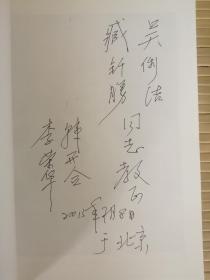 吴俊洁
臧新胜 同志教正
韩开合
李荣华
2015年7月8日
于北京